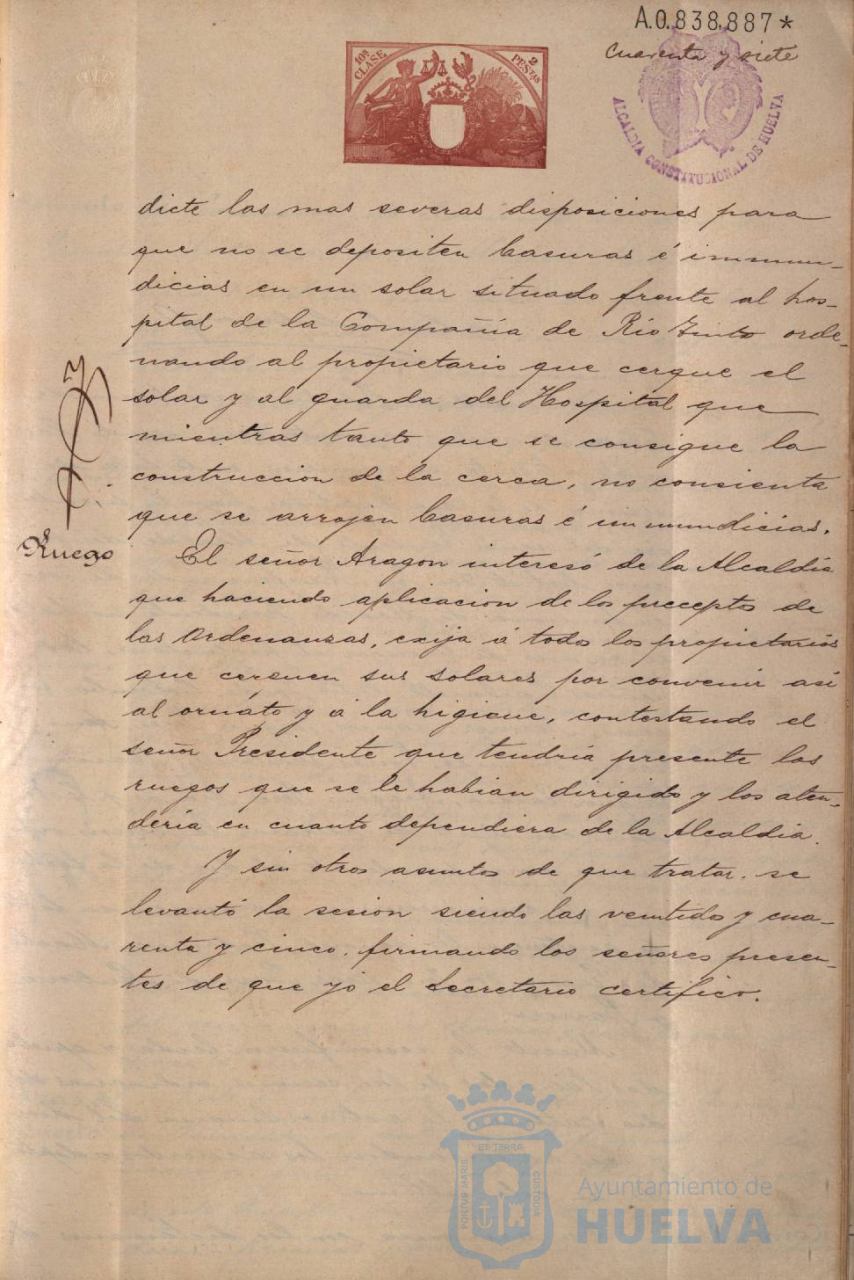 A.0.838.887*
cuarenta y siete
10ª CLASE
2 PESTAS
ALCALDIA CONSTITUCIONAL DE HUELVA
dicte las mas severas disposiciones para
que no se depositen basuras é inmun-
dicias en un solar situado frente al hos-
pital de la Compañia de Rio Tinto orde-
nando al propietario que cerque el
solar y al guarda del Hospital que
mientras tanto que se consigue la
construccion de la cerca, no consienta
que se arrojen basuras é inmundicias.
Ruego
El señor Aragon interesó de la Alcaldia
que haciendo aplicacion de los preceptos de
las Ordenanzas, exija á todos los propietarios
que cerquen sus solares por convenir asi
al ornáto y á la higiene, contestando el
señor Presidente que tendria presente los
ruegos que se le habian dirigido y los aten-
deria en cuanto dependiera de la Alcaldia.
Y sin otros asuntos de que tratar. se
levantó la sesion siendo las veintidos y cua-
renta y cinco. firmando los señores presen-
tes de que yo el Secretario certifico.
PORTUS MARIS ET TERRÆ CUSTODIA
Ayuntamiento de
HUELVA